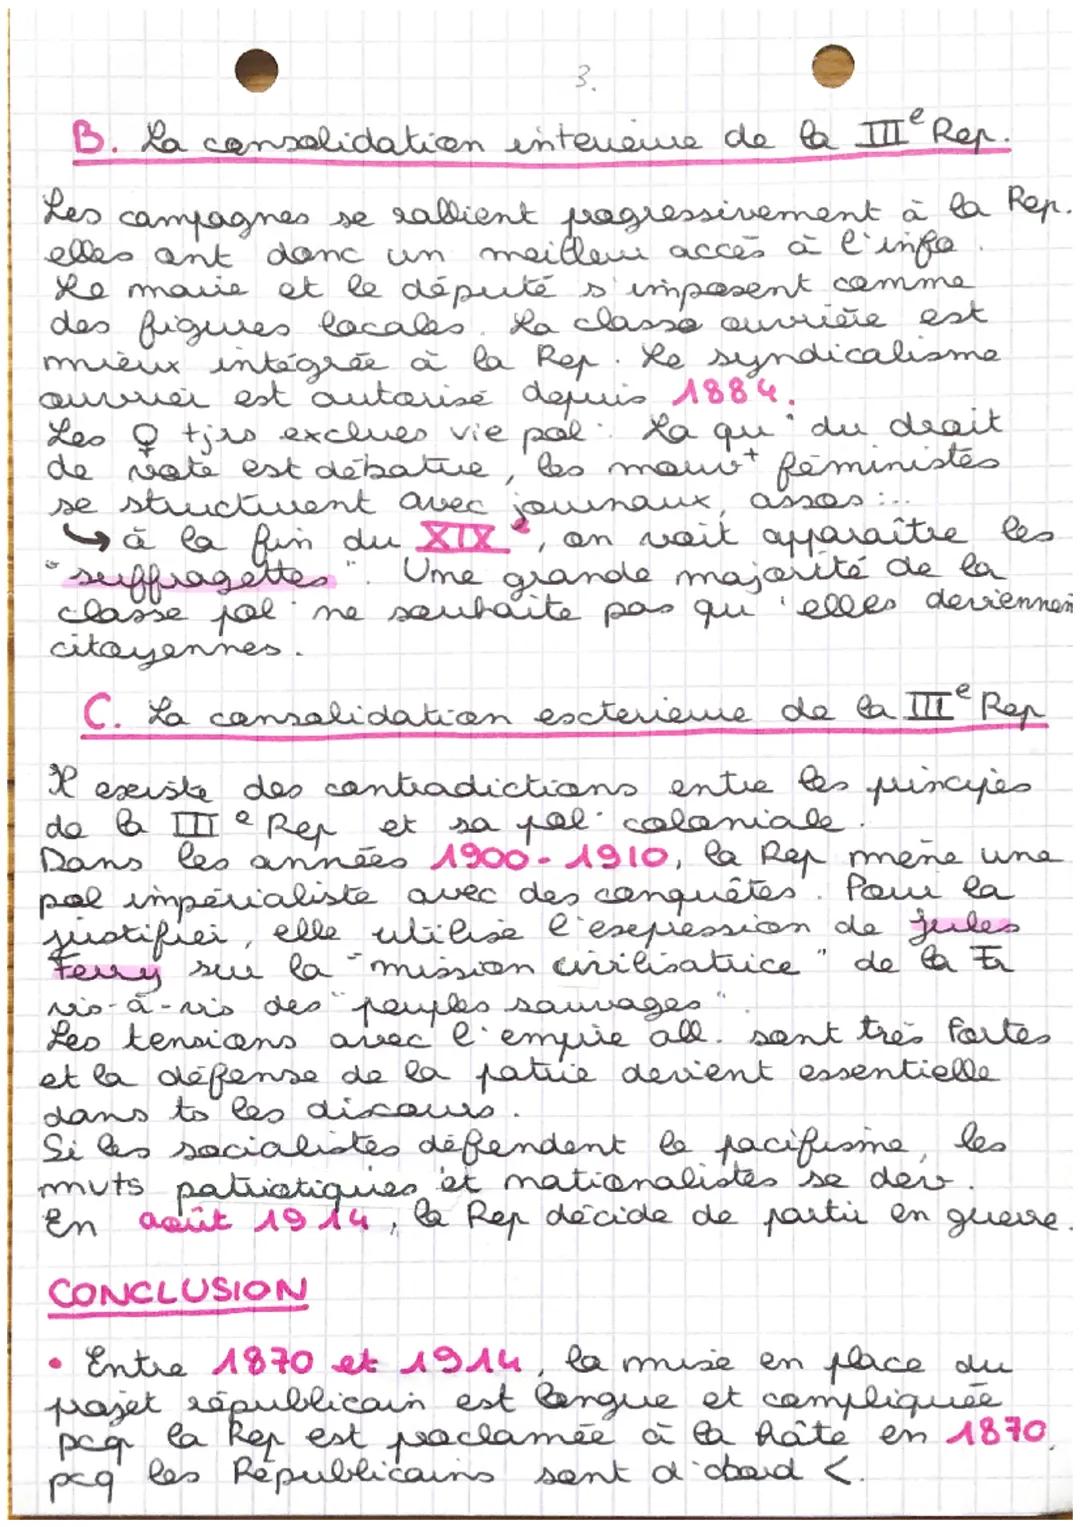 3.
B. La consolidation interieure de la IIIe Rep.
Les campagnes se rallient progressivement à la Rep.
elles ont donc un meilleur accès à l'info.
Le maire et le député s'imposent comme
des figures locales. La classe ouvrière est
mieux intégrée à la Rep. Le syndicalisme
ouvrier est autorisé depuis 1884.
Les ♀ tjrs exclues vie pol. La qu° du droit
de vote est débattue, les mouv+ féministes
se structurent avec journaux, assos...
↳ à la fin du XIXe, on voit apparaître les
"suffragettes". Une grande majorité de la
classe pol. ne souhaite pas qu'elles deviennent
citoyennes.
C. La consolidation exterieure de la IIIe Rep
Il existe des contradictions entre les principes
de la IIIe Rep et sa pol. coloniale.
Dans les années 1900-1910, la Rep mène une
pol impérialiste avec des conquêtes. Pour la
justifier, elle utilise l'expression de Jules
Ferry sur la "mission civilisatrice" de la Fr
vis-à-vis des "peuples sauvages".
Les tensions avec l'empire all. sont très fortes
et la défense de la patrie devient essentielle
dans ts les discours.
Si les socialistes défendent le pacifisme, les
mvts patriotiques et nationalistes se dev.
En août 1914, la Rep décide de partir en guerre.
CONCLUSION
• Entre 1870 et 1914, la mise en place du
projet républicain est longue et compliquée
pcq la Rep est proclamée à la hâte en 1870.
pcq les Républicains sont d'abord <.